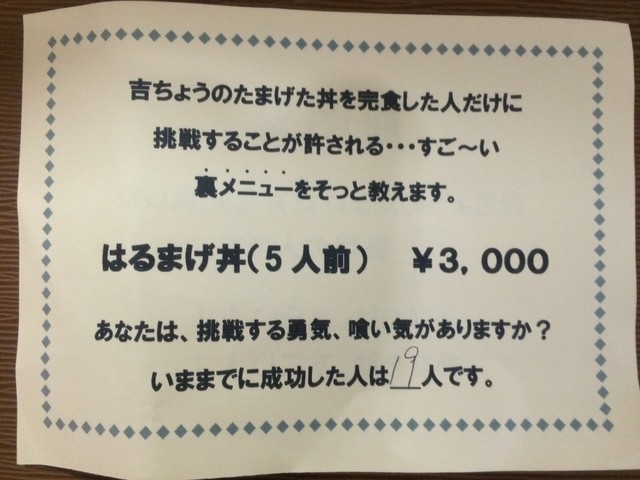 吉ちょうのたまげた丼を完食した人だけに
挑戦することが許される・・・すご～い
裏メニューをそっと教えます。
はるまげ丼（5人前） ￥3，000
あなたは、挑戦する勇気、喰い気がありますか？
いままでに成功した人は19人です。